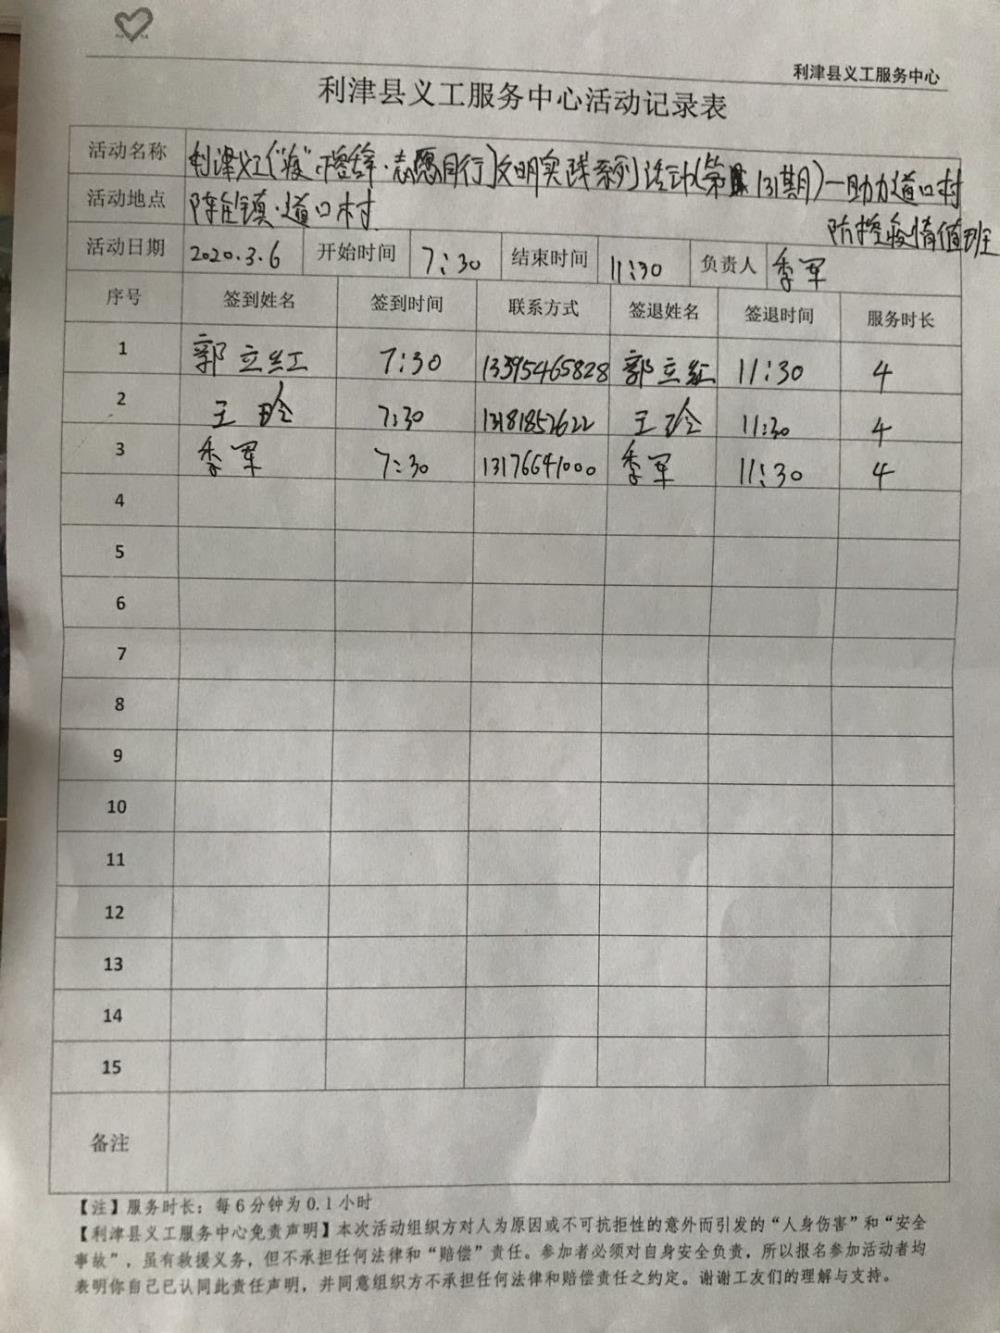 利津县义工服务中心
利津县义工服务中心活动记录表
活动名称 利津义工{"疫"不容辞·志愿同行}文明实践系列活动(第 131期)—助力道口村
防控疫情值班
活动地点 陈庄镇·道口村
活动日期 2020.3.6 开始时间 7:30 结束时间 11:30 负责人 季军
序号 签到姓名 签到时间 联系方式 签退姓名 签退时间 服务时长
1 郭立红 7:30 13395465828 郭立红 11:30 4
2 王玲 7:30 13181852622 王玲 11:30 4
3 季军 7:30 13176641000 季军 11:30 4
4
5
6
7
8
9
10
11
12
13
14
15
备注
【注】服务时长：每6分钟为0.1小时
【利津县义工服务中心免责声明】本次活动组织方对人为原因或不可抗拒性的意外而引发的“人身伤害”和“安全
事故”，虽有救援义务，但不承担任何法律和“赔偿”责任。参加者必须对自身安全负责，所以报名参加活动者均
表明你自己已认同此责任声明，并同意组织方不承担任何法律和赔偿责任之约定。谢谢工友们的理解与支持。